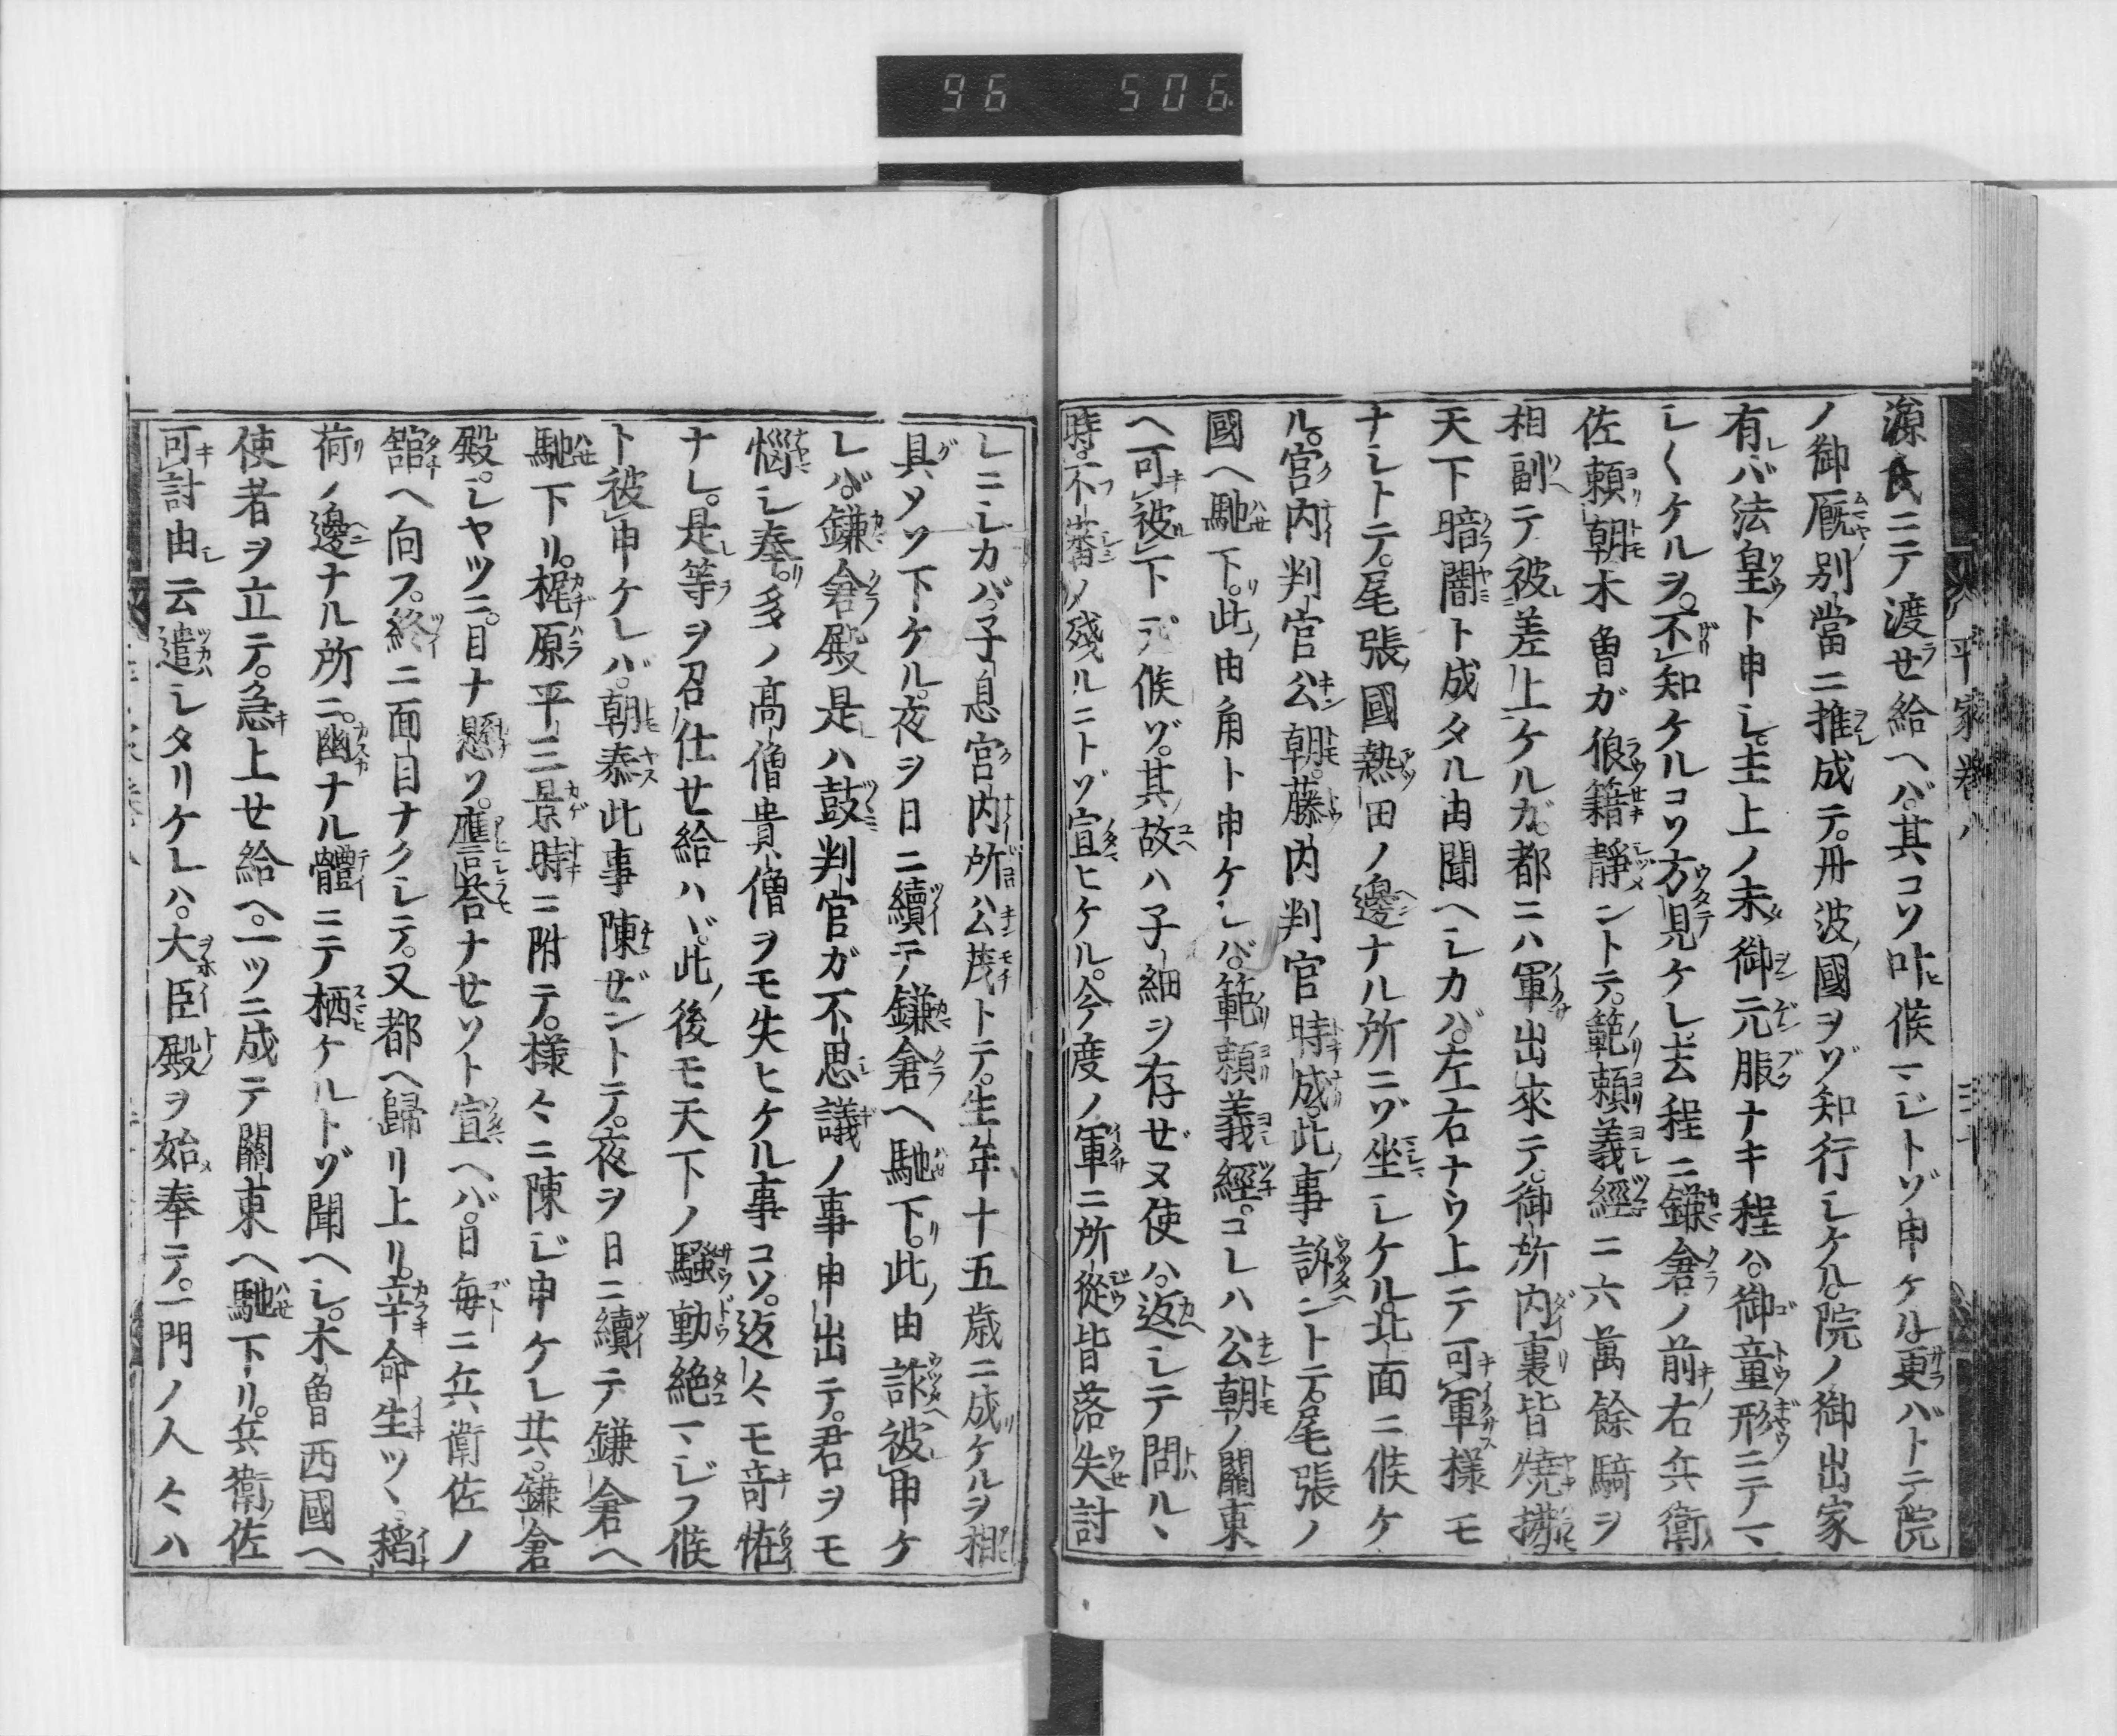 96 506
平家巻八 三十
源氏ニテ渡セ給ヘバ。其コソ叶候マジトゾ申ケル。更バトテ院
ノ御厩別當ニ推成テ。丹波國ヲゾ知行シケル。院ノ御出家
有バ法皇ト申シ。主上ノ未御元服ナキ程ハ。御童形ニテマ
シ〱ケルヲ。不知ケルコソ方見ケレ。去程ニ鎌倉ノ前右兵衛
佐頼朝木曽ガ狼籍靜ントテ。範頼義經ニ六萬餘騎ヲ
相副テ被差上ケルガ。都ニハ軍出來テ。御所内裏皆燒拂
天下暗闇ト成タル由聞ヘシカバ。左右ナウ上テ可軍様モ
ナシトテ。尾張國熱田ノ邊ナル所ニゾ坐シケル。北面ニ候ケ
ル。宮内判官公朝。藤内判官時成。此事訴ントテ。尾張ノ
國ヘ馳下。此由角ト申ケレバ。範頼義經。コレハ公朝ノ關東
ヘ可被下ニテ候ゾ。其故ハ子細ヲ存ゼヌ使ハ。返シテ問ルヽ
時。不審ノ殘ルニトゾ宣ヒケル。今度ノ軍ニ所從皆落失討
レニシカバ。子息宮内所ハ公茂トテ。生年十五歳ニ成ケルヲ相
具ソソ下ケル。夜ヲ日ニ續テ鎌倉ヘ馳下。此由訴被申ケ
レバ。鎌倉殿是ハ鼓判官ガ不思議ノ事申出テ。君ヲモ
惱シ奉。多ノ高僧貴僧ヲモ失ヒケル事コソ。返々モ竒恠
ナレ。是等ヲ召仕セ給ハヾ。此後モ天下ノ騒動絶マジフ候
ト被申ケレバ。朝泰此事陳ゼントテ。夜ヲ日ニ續テ鎌倉ヘ
馳下リ。梶原平三景時ニ附テ。様々ニ陳ジ申ケレ共。鎌倉
殿。シヤツニ。目ナ懸ソ。應答ナセソト宣ヘバ。日毎ニ兵衛佐ノ
舘ヘ向フ。終ニ面目ナクシテ。又都ヘ歸リ上リ。辛命生ツヽ稲
荷ノ邊ナル所ニ。幽ナル體ニテ栖ケルトゾ聞ヘシ。木曽西國ヘ
使者ヲ立テ。急上セ給ヘ。一ツニ成テ關東ヘ馳下リ。兵衛佐
可討由云遣シタリケレハ。大臣殿ヲ始奉テ。一門ノ人々ハ